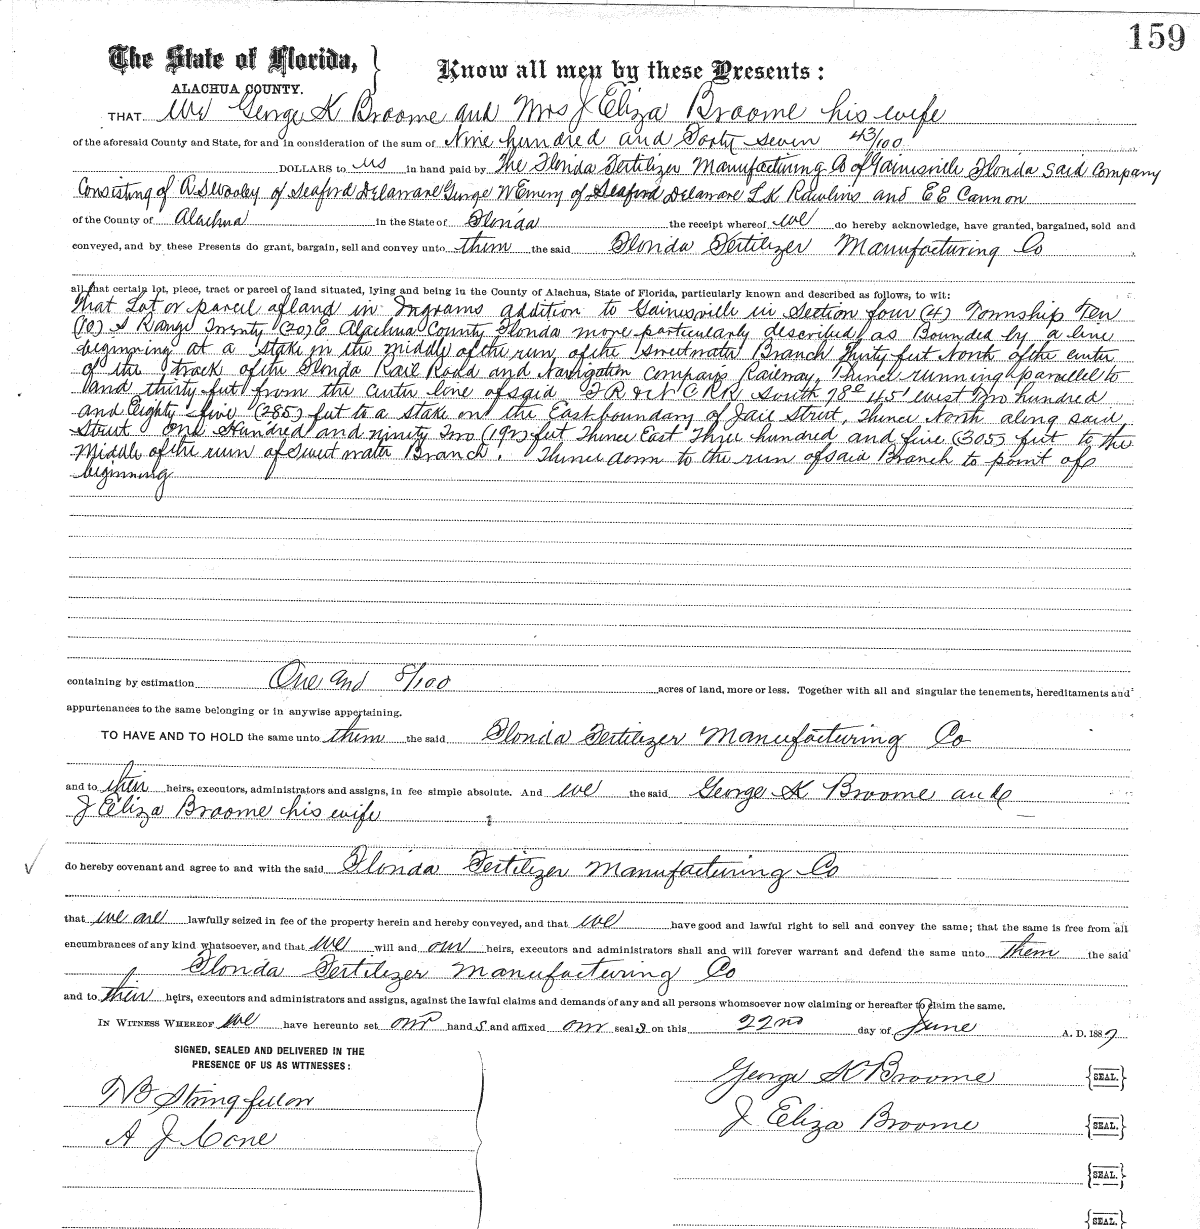 159
The State of Florida, } Know all men by these Presents:
ALACHUA COUNTY.
THAT We George K Broome and Mrs J Eliza Broome his wife
of the aforesaid County and State, for and in consideration of the sum of Nine hundred and Forty seven 43/100
DOLLARS to us in hand paid by The Florida Fertilizer Manufacturing Co of Gainesville Florida Said Company
Consisting of of Seaford Delaware George W Emery of Seaford Delaware L K Rawlins and E E Cannon
of the County of Alachua in the State of Florida the receipt whereof we do hereby acknowledge, have granted, bargained, sold and
conveyed, and by these Presents do grant, bargain, sell and convey unto them the said Florida Fertilizer Manufacturing Co
all that certain lot, piece, tract or parcel of land situated, lying and being in the County of Alachua, State of Florida, particularly known and described as follows, to wit:
That Lot or parcel of land in Ingrams addition to Gainesville in Section four (4) Township Ten
(10) S Range Twenty (20) E Alachua County Florida more particularly described as Bounded by a line
beginning at a stake in the middle of the run of the sweetwater Branch Thirty feet North of the center
of the track of the Florida Rail Road and Navigation Company's Railway, Thence running parallel to
and thirty feet from the center line of said F R & N C R R South 78° 45' west Two hundred
and Eighty five (285) feet to a stake on the East boundary of Jail Street, Thence North along said
Street One Hundred and ninety Two (192) feet Thence East Three hundred and five (305) feet to the
Middle of the run of Sweetwater Branch. Thence down to the run of said Branch to point of
beginning
containing by estimation One and 8/100 acres of land, more or less. Together with all and singular the tenements, hereditaments and
appurtenances to the same belonging or in anywise appertaining.
TO HAVE AND TO HOLD the same unto them the said Florida Fertilizer Manufacturing Co
and to their heirs, executors, administrators and assigns, in fee simple absolute. And we the said George K Broome and
J Eliza Broome his wife
do hereby covenant and agree to and with the said Florida Fertilizer Manufacturing Co
that we are lawfully seized in fee of the property herein and hereby conveyed, and that we have good and lawful right to sell and convey the same; that the same is free from all
encumbrances of any kind whatsoever, and that we will and our heirs, executors and administrators shall and will forever warrant and defend the same unto them the said
Florida Fertilizer Manufacturing Co
and to their heirs, executors and administrators and assigns, against the lawful claims and demands of any and all persons whomsoever now claiming or hereafter to claim the same.
IN WITNESS WHEREOF we have hereunto set our hands and affixed our seals on this 22nd day of June A. D. 1887
SIGNED, SEALED AND DELIVERED IN THE
PRESENCE OF US AS WITNESSES:
George K Broome {SEAL.}
Stringfellow
J Eliza Broome {SEAL.}
A J Cone
{SEAL.}
{SEAL.}